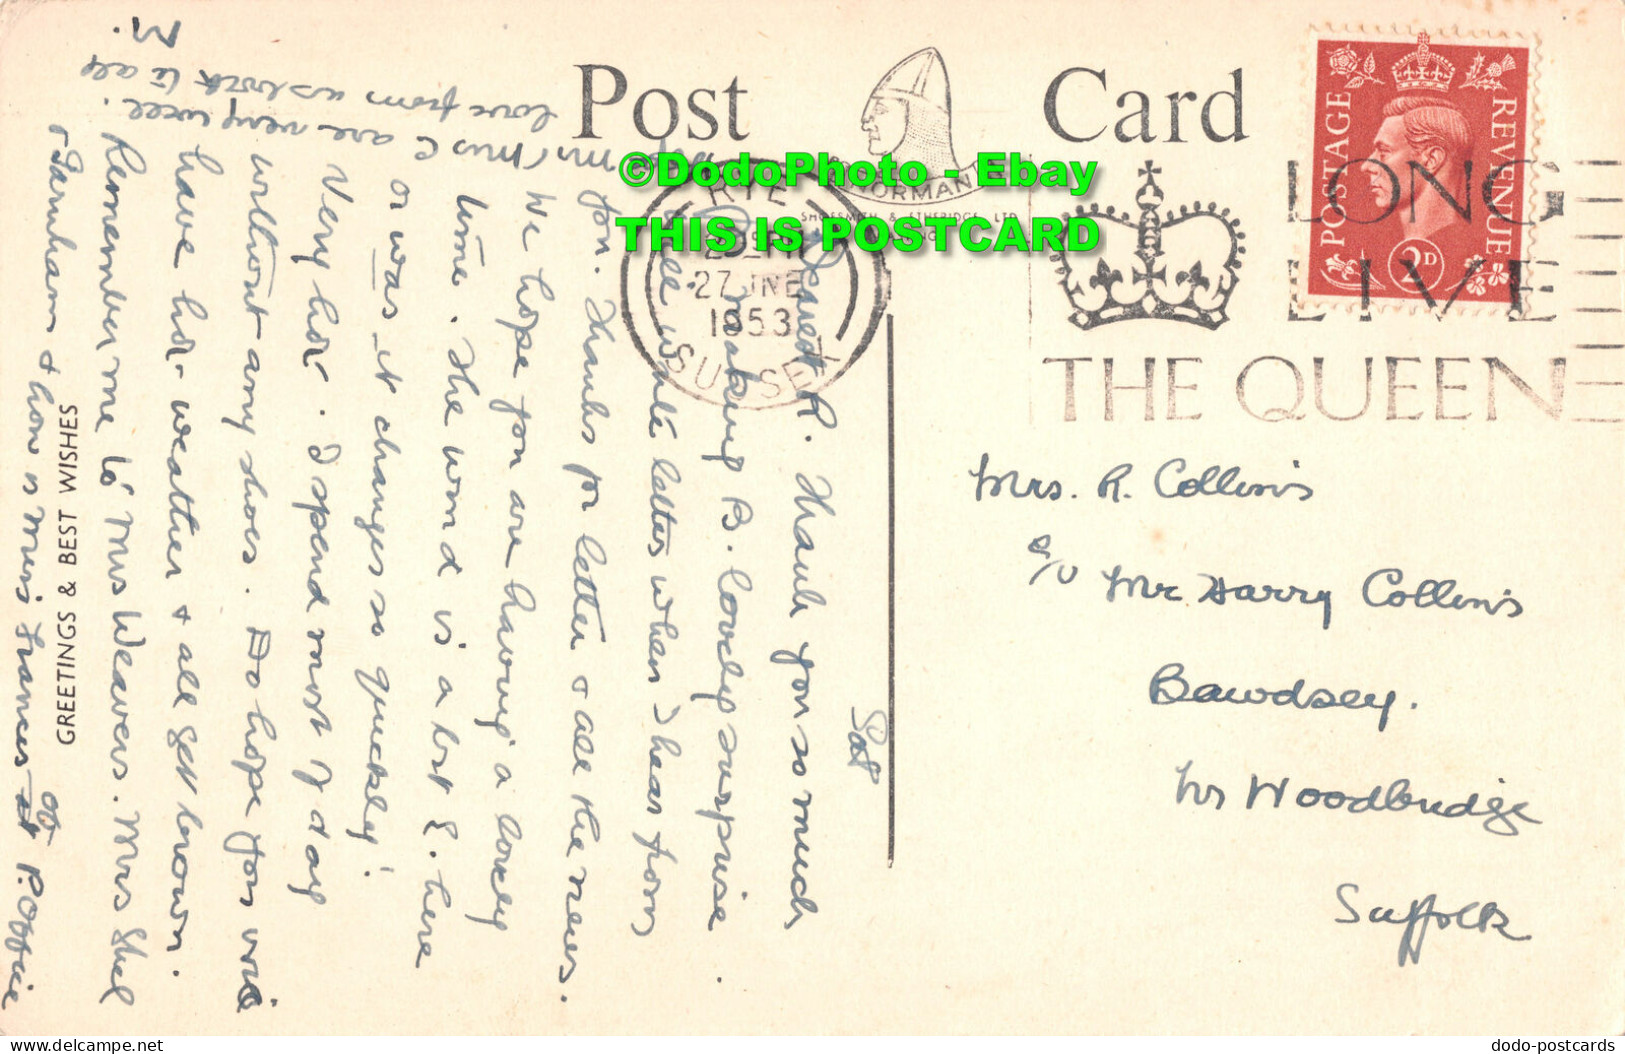 Post Card
NORMAN
SHOESMITH & ETHERIDGE LTD
©DodoPhoto - Ebay
THIS IS POSTCARD
RYE
27 JNE
1953
SUSSEX
LONG
LIVE
THE QUEEN
POSTAGE
REVENUE
2D
Mrs. R. Collins
c/o Mr Harry Collins
Bawdsey.
Nr Woodbridge
Suffolk
Sat
Dearest R. Thank you so much
making B. lovely surprise.
will write letter when I hear from
you. Thanks for letter & all the news.
We hope you are having a lovely
time. The wind is a bit E. here
or was - it changes so quickly!
Very hot. I spend most of day
without any shoes. Do hope you will
have hot weather & all get brown.
Remember me to Mrs Weavers. Mrs Shel
& Farnham & how is Miss Frances at P. Office
Mr & Mrs C are very well.
love from us both to all
M.
GREETINGS & BEST WISHES
dodo-postcards
delcampe.net